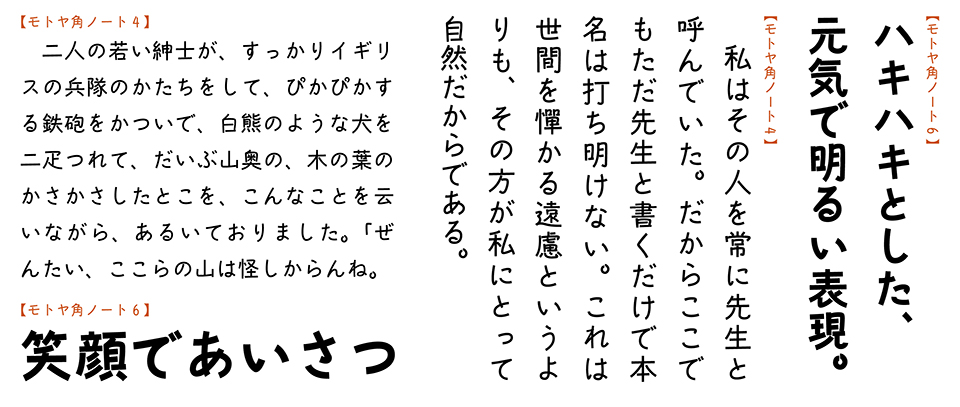 【モトヤ角ノート4】
　二人の若い紳士が、すっかりイギリ
スの兵隊のかたちをして、ぴかぴかす
る鉄砲をかついで、白熊のような犬を
二疋つれて、だいぶ山奥の、木の葉の
かさかさしたとこを、こんなことを云
いながら、あるいておりました。「ぜ
んたい、ここらの山は怪しからんね。
【モトヤ角ノート6】
笑顔であいさつ
【モトヤ角ノート6】
ハキハキとした、
元気で明るい表現。
【モトヤ角ノート4】
　私はその人を常に先生と
呼んでいた。だからここで
もただ先生と書くだけで本
名は打ち明けない。これは
世間を憚かる遠慮というよ
りも、その方が私にとって
自然だからである。